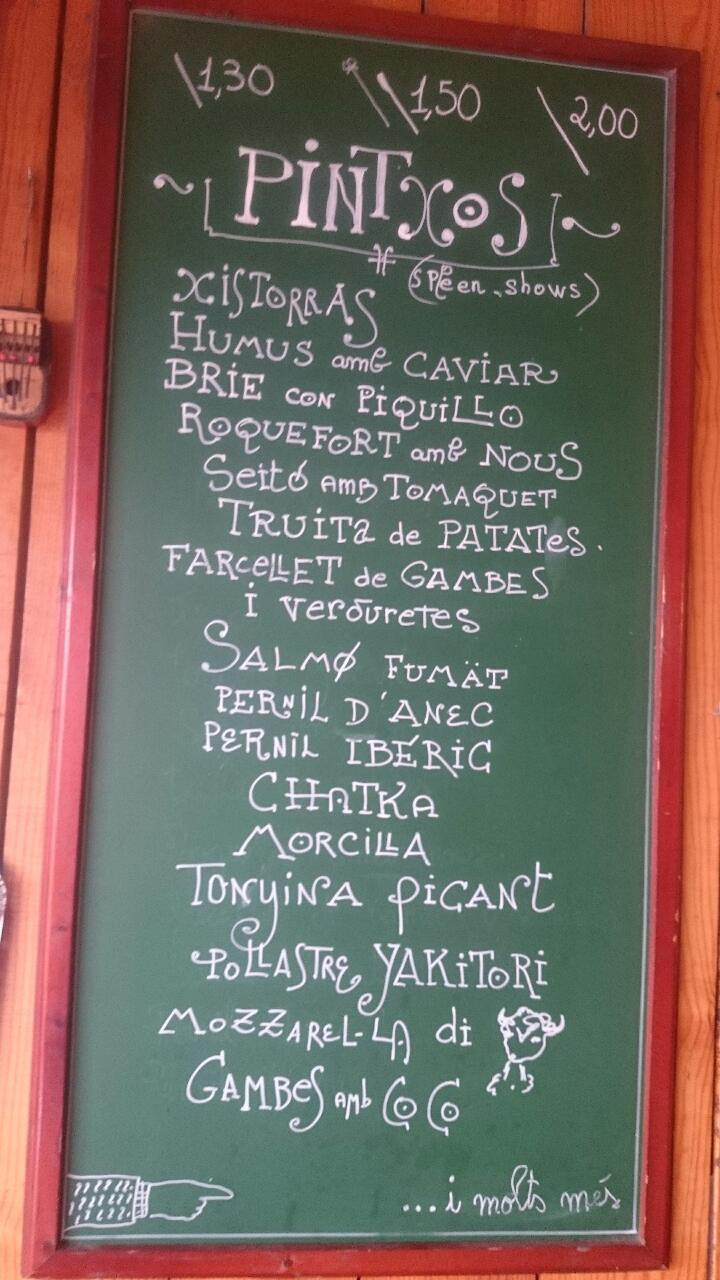 1,30 1,50 2,00
~ PINTXOS ~
(spleen shows)
XISTORRAS
HUMUS amb CAVIAR
BRIE CON PIQUILLO
ROQUEFORT amb NOUS
Seitó AMB TOMAQUET
TRUITa de PATATeS.
FARCeLLET de GAMBES
i verduretes
SALMØ FUMÄT
PERNIL D'ANEC
PERNIL IBÉRIC
CHATKA
MORCILLA
TONyiNA PiCANt
POLLASTRE YAKITORI
MOZZAREL-LA di
GAMBeS AMb COCO
...i molts més